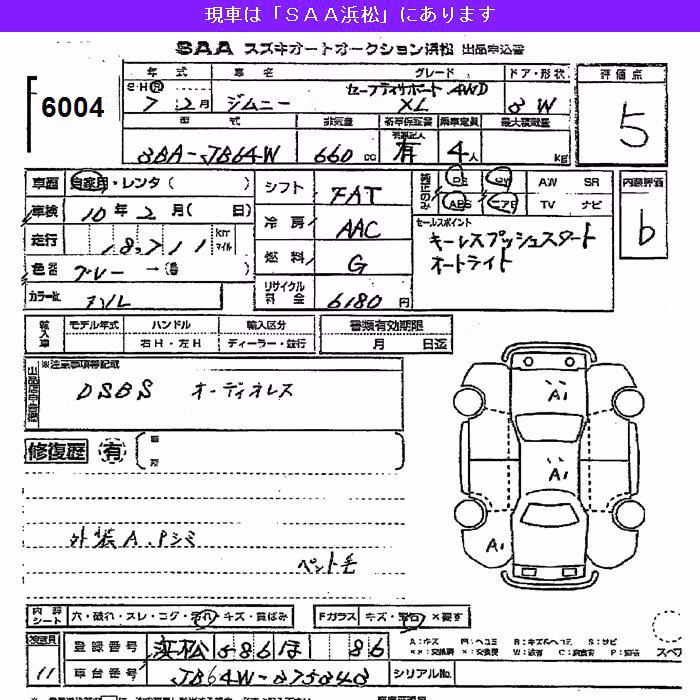 現車は「ＳＡＡ浜松」にあります
SAA スズキオートオークション浜松 出品申込書
6004
年式 車名 グレード ドア・形状 評価点
S・H・R 7 2月 ジムニー セーフティサポート 4WD XL 3 W 5
型式 排気量 新車保証書 乗車定員 最大積載量
3BA-JB64W 660cc 有 4人 kg
車歴 自家用・レンタ( ) シフト FAT PS PW AW SR 内装評価
車検 10年2月( 日) 冷房 AAC ABS エアB TV ナビ b
走行 18,711 km マイル
セールスポイント
キーレスプッシュスタート
オートライト
色 グレー →( ) 燃料 G
カラーNo. リサイクル料金 6180円
輸入車 モデル年式 ハンドル 輸入区分 書類有効期限
右H・左H ディーラー・並行 月 日迄
※注意事項等記載
DSBS オーディオレス
修復歴 有
A1
A1
A1
外装A.Pシミ
ペット毛
内評シート 穴・破れ・スレ・コゲ・汚れ・キズ・黄ばみ Fガラス キズ・飛石・×要す
検査員 11
登録番号 浜松 586 ほ 86
車台番号 JB64W-375343 シリアルNo.
A：キズ B：キズ&ヘコミ S：サビ